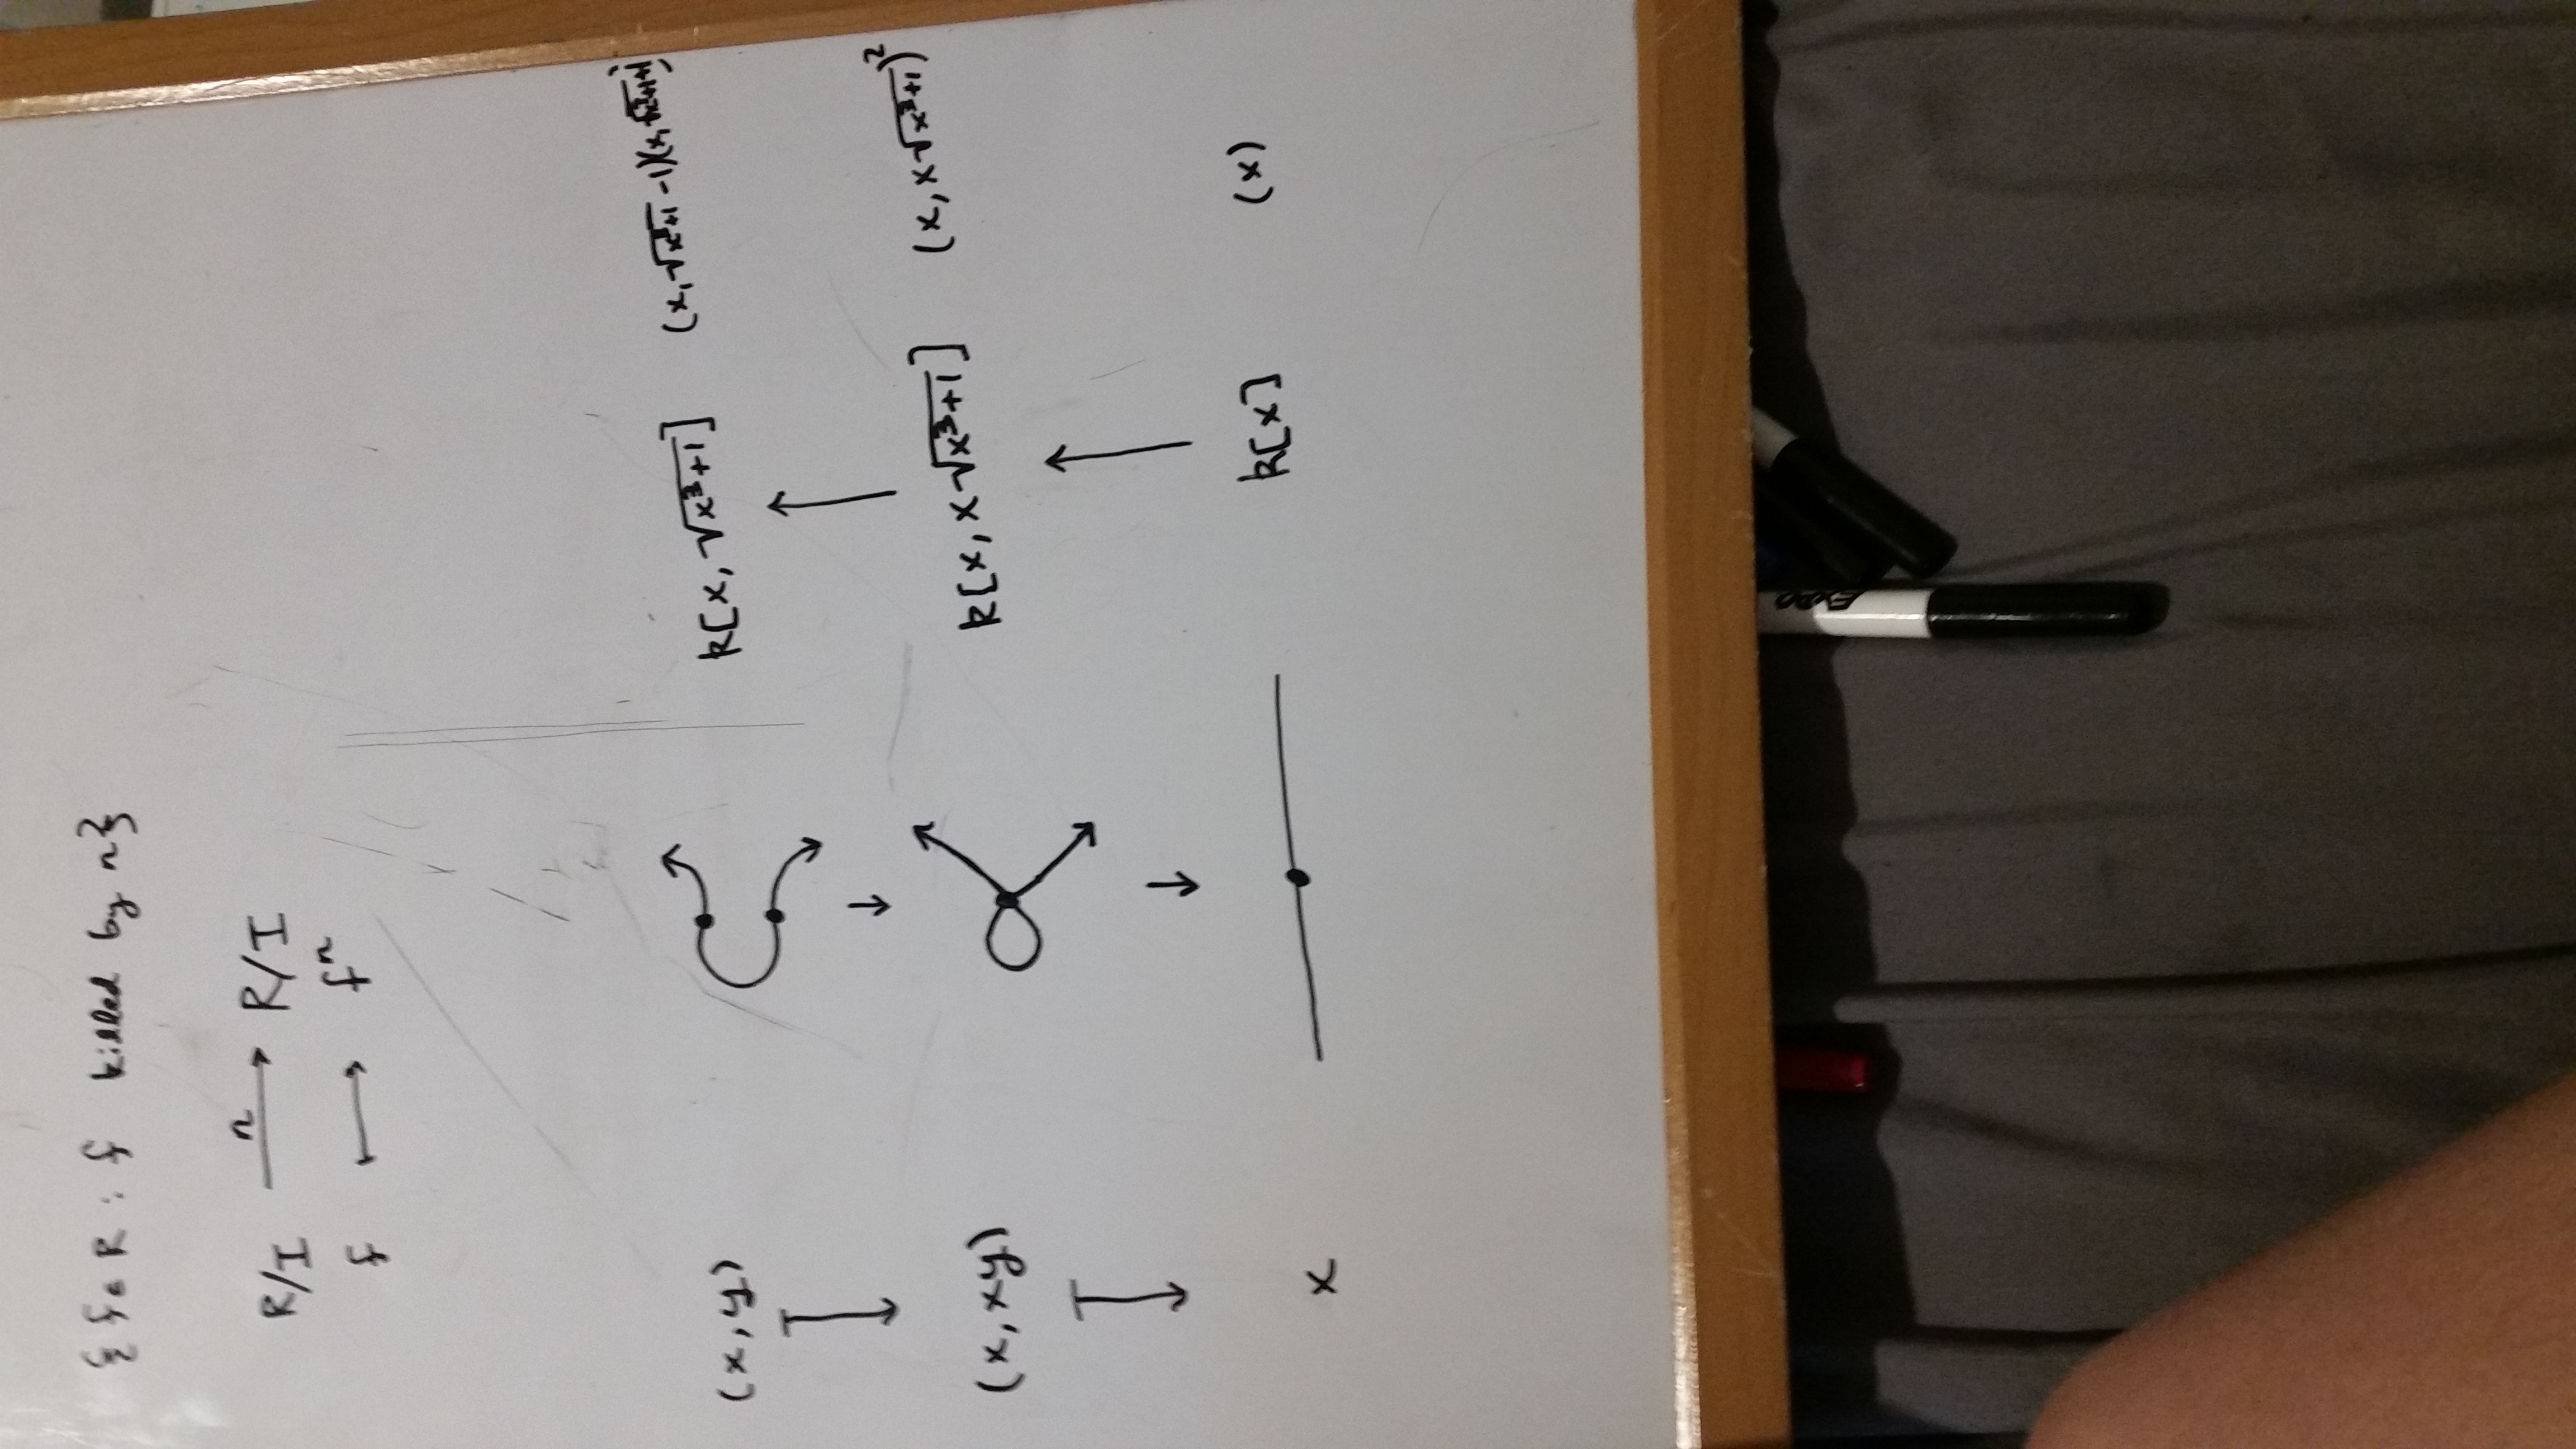 {f ∈ R : f killed by n}
R/I —n→ R/I
f ⟼ fⁿ
(x, y) k[x, √(x³+1)] (x, √(x³+1) -1)(x, √(x³+1) +1)
(x, xy) k[x, x√(x³+1)] (x, x√(x³+1))²
x k[x] (x)
EXPO